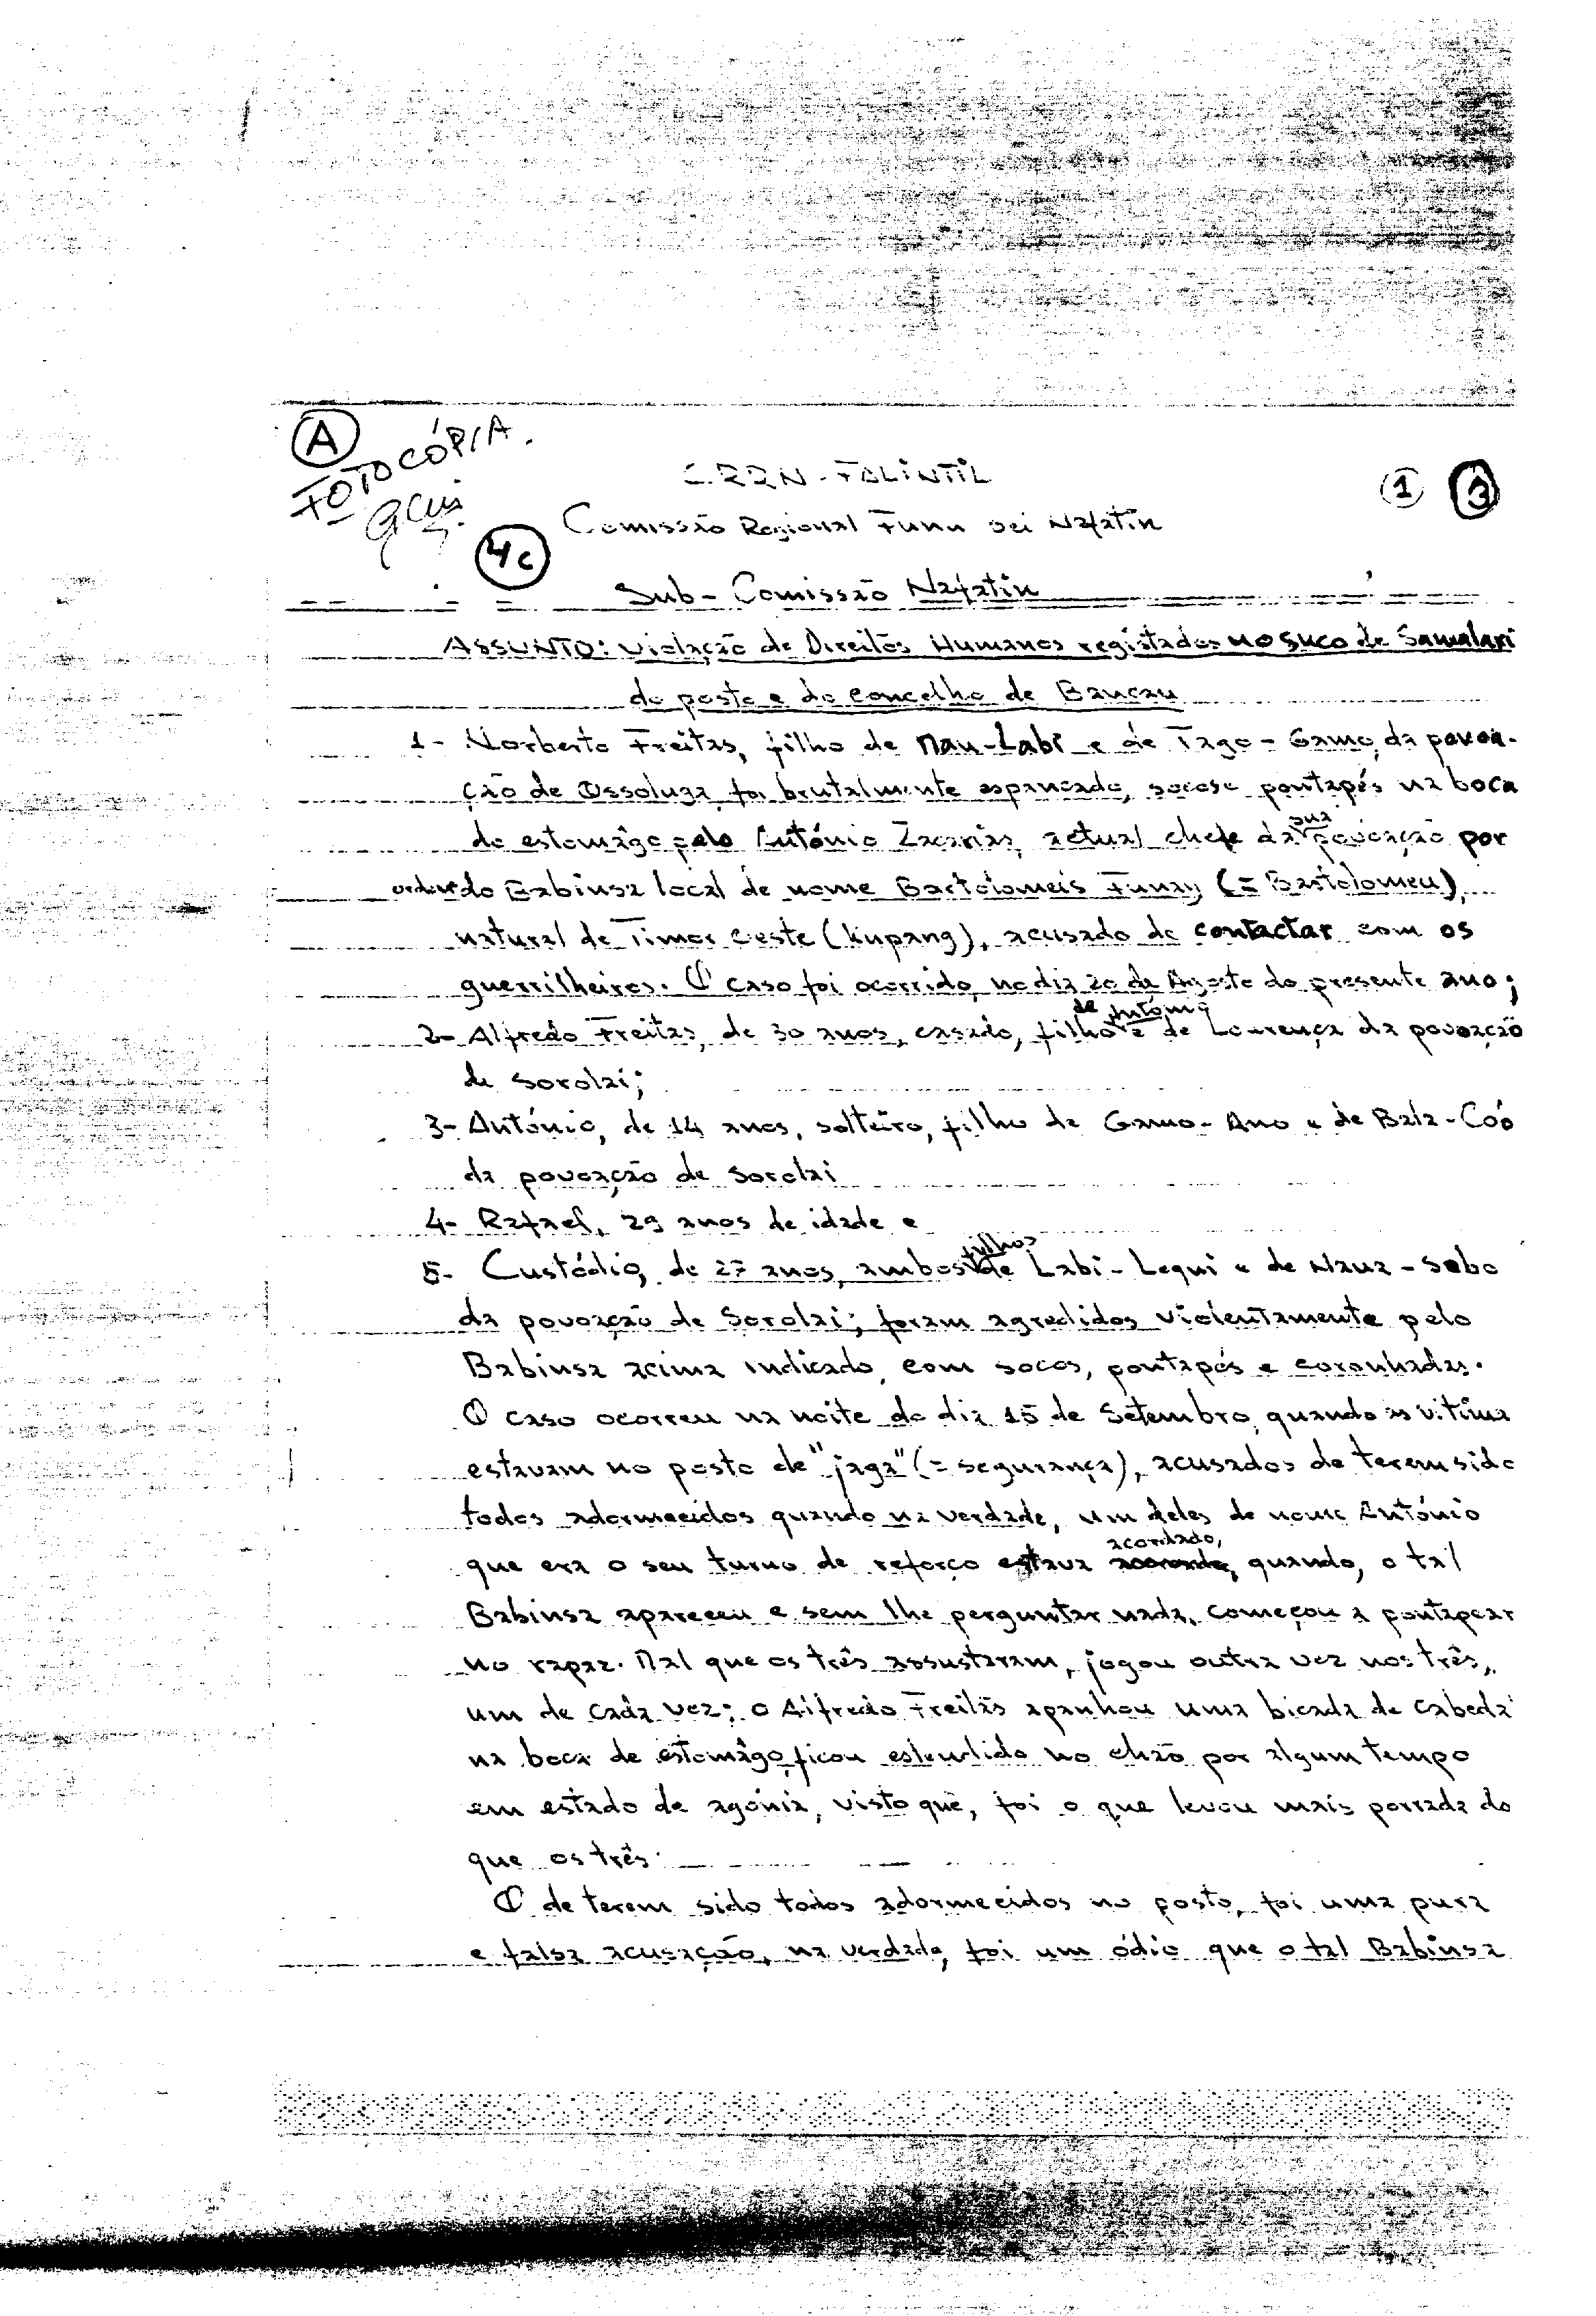 A
FOTOCÓPIA.
C.R.R.N - FALINTIL
1 3
Comissão Regional Funu sei Nafatin
4c
Sub - Comissão Nafatin
ASSUNTO: Violação de Direitos Humanos registados no suco de Samalari
do posto e do concelho de Baucau
1- Norberto Freitas, filho de Mau-Labi e de Tago - Gamo, da povoa-
ção de Ossoluga, foi brutalmente espancado, socose pontapés na boca
do estomâgo pelo António Zacarias, actual chefe da sua povoação por
ordem do Babinsa local de nome Bartolomeis Funay (= Bartolomeu),
natural de Timor oeste (Kupang), acusado de contactar com os
guerrilheiros. O caso foi ocorrido, no dia 20 de Agosto do presente ano;
2- Alfredo Freitas, de 30 anos, casado, filho de António e de Lourença da povoação
de Sorolai;
3- António, de 14 anos, solteiro, filho de Gamo - Ano e de Bala - Coó
da povoação de Sorolai
4- Rafael, 29 anos de idade e
5- Custódio, de 27 anos, ambos filhos de Labi - Lequi e de Naua - Sabo
da povoação de Sorolai; foram agredidos violentamente pelo
Babinsa acima indicado, com socos, pontapés e coronhadas.
O caso ocorreu na noite do dia 15 de Setembro, quando as vitima
estavam no posto de "jaga" (= segurança), acusados de terem sido
todos adormecidos quando na verdade, um deles de nome António
que era o seu turno de reforço estava acordado, quando, o tal
Babinsa apareceu e sem lhe perguntar nada, começou a pontapear
no rapaz. Mal que os três assustaram, jogou outra vez nos três,
um de cada vez; o Alfredo Freitas apanhou uma bicada de cabeda
na boca de estomâgo, ficou estendido no chão por algum tempo
em estado de agónia, visto que, foi o que levou mais porrada do
que os três.
O de terem sido todos adormecidos no posto, foi uma pura
e falsa acusação, na verdade, foi um ódio que o tal Babinsa